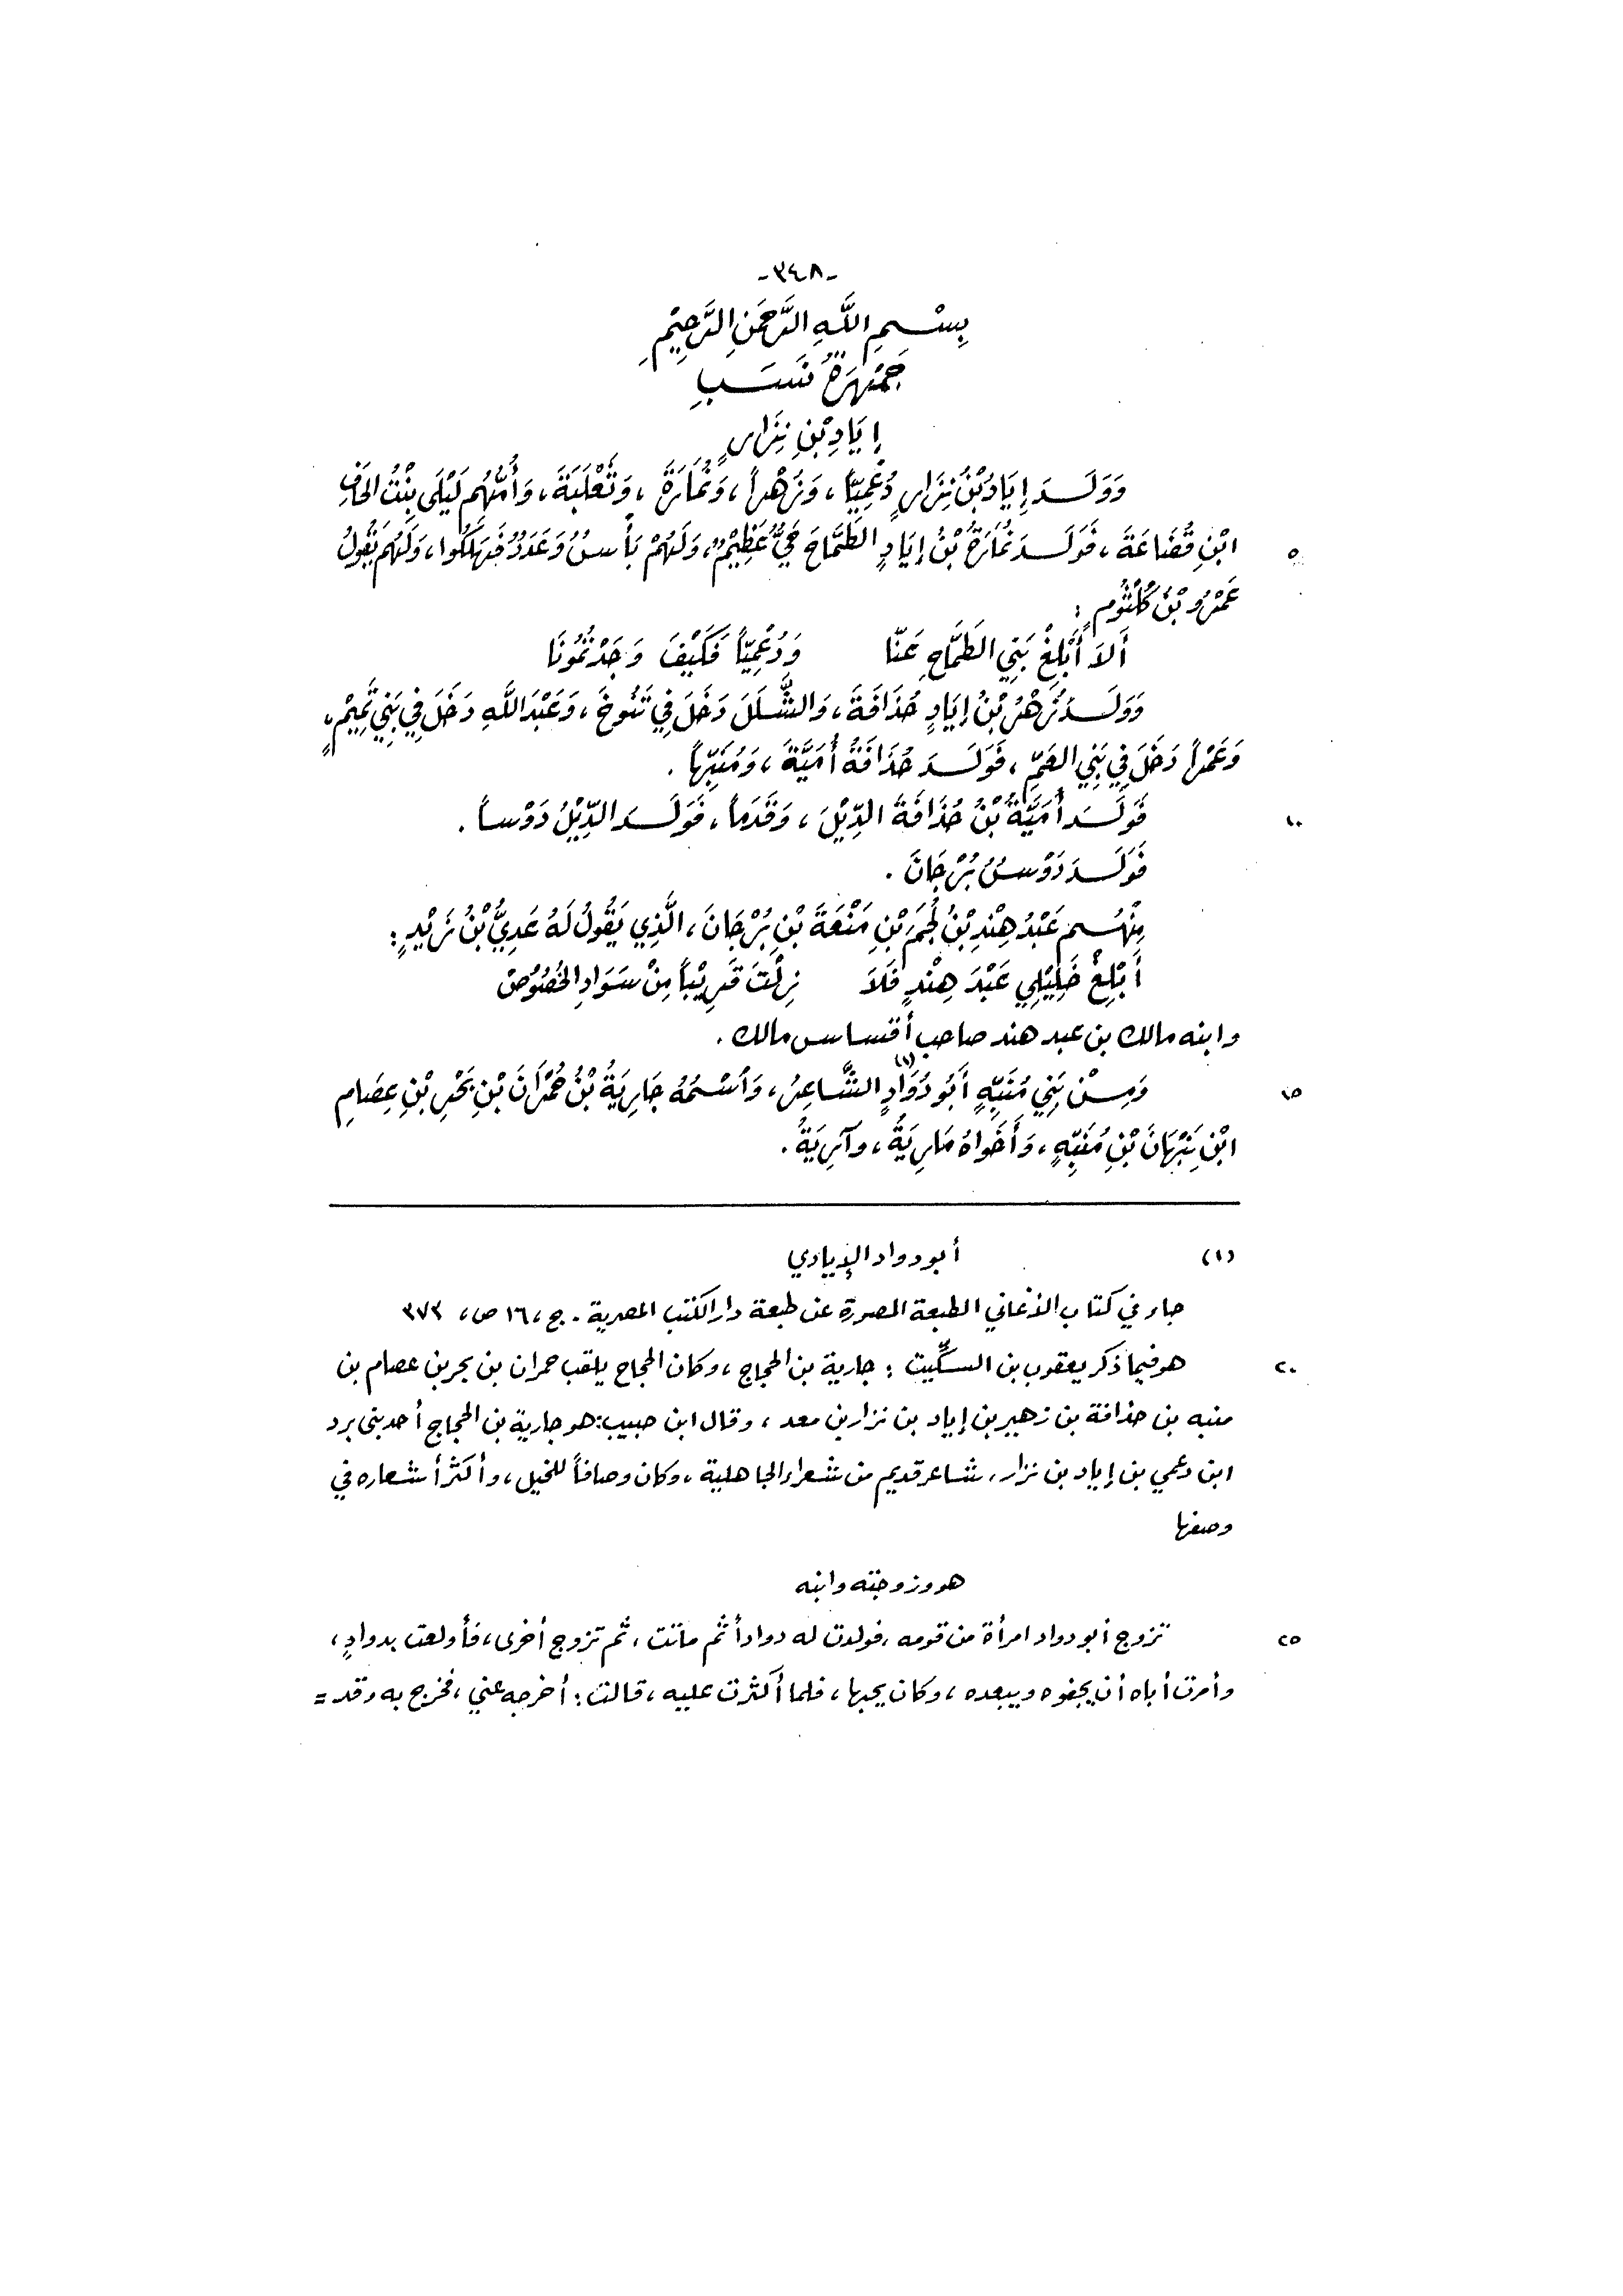 -٣٤٨-
بِسْمِ اللَّهِ الرَّحْمَنِ الرَّحِيْمِ
جَمْهَرَةُ نَسَبِ
إِيَادِ بْنِ نِزَارٍ
وَوَلَدَ إِيَادُ بْنُ نِزَارٍ دُعْمِيّاً، وَزُهْراً، وَنُمَارَةَ، وَثَعْلَبَةَ، وَأُمُّهُم لَيْلَى بِنْتُ الحَافِ
ابْنِ قُضَاعَةَ، فَوَلَدَ نُمَارَةُ بْنُ إِيَادٍ الطَّمَّاحَ حَيٌّ عَظِيْمٌ، وَلَهُمْ بَأْسٌ وَعَدَدٌ فَهَلَكُوا، وَلَهُم يَقُولُ
٥
عَمْرُو بْنُ كُلْثُومٍ :
أَلاَ أَبْلِغْ بَنِي الطَّمَّاحِ عَنّا وَدُعْمِيّاً فَكَيْفَ وَجَدْتُمُونَا
وَوَلَدَ زُهْرُ بْنُ إِيَادٍ حُذَافَةَ، وَالشَّلَلَ دَخَلَ فِي تَنُوخَ، وَعَبْدَ اللَّهِ دَخَلَ فِي بَنِي تَمِيْمٍ،
وَعَمْراً دَخَلَ فِي بَنِي العَمِّ، فَوَلَدَ حُذَافَةُ أُمَيَّةَ، وَمُنَبِّهاً .
فَوَلَدَ أُمَيَّةُ بْنُ حُذَافَةَ الدِّيْلَ، وَقَدَماً، فَوَلَدَ الدِّيْلُ دَوْساً .
١٠
فَوَلَدَ دَوْسٌ بُرْجَانَ .
مِنْهُم عَبْدُ هِنْدِ بْنُ لُجَمِ بْنِ مَنْعَةَ بْنِ بُرْجَانَ، الَّذِي يَقُولُ لَهُ عَدِيُّ بْنُ زَيْدٍ :
أَبْلِغْ خَلِيْلِي عَبْدَ هِنْدٍ فَلاَ زِلْتَ قَرِيْباً مِنْ سَوَادِ الخُصُوْصْ
وابنه مالك بن عبد هند صاحب أقساس مالك .
وَمِنْ بَنِي مُنَبِّهٍ أَبُو دُوَادٍ (١) الشَّاعِرُ، وَاسْمُهُ جَارِيَةُ بْنُ حُمْرَانَ بْنِ بَحْرِ بْنِ عِصَامِ
١٥
ابْنِ نَبْهَانَ بْنِ مُنَبِّهٍ، وَأَخَوَاهُ مَارِيَةُ، وَآرِيَةُ .
(١) أبو دواد الإيادي
جاء في كتاب الأغاني الطبعة المصورة عن طبعة دار الكتب المصرية . ج، ١٦ ص، ٣٧٣
هو فيما ذكر يعقوب بن السكِّيت : جارية بن الحجاج، وكان الحجاج يلقب حمران بن بحر بن عصام بن
٢٠
منبه بن حذافة بن زهير بن إياد بن نزار بن معد، وقال ابن حبيب: هو جارية بن الحجاج أحد بني برد
ابن دعمي بن إياد بن نزار، شاعر قديم من شعراء الجاهلية، وكان وصافاً للخيل، وأكثر أشعاره في
وصفها
هو وزوجته وابنه
تزوج أبو دواد امرأة من قومه، فولدت له دواداً ثم ماتت، ثم تزوج أخرى، فأولعت بدوادٍ،
٢٥
وأمرت أباه أن يجفوه ويبعده، وكان يحبها، فلما أكثرت عليه، قالت : أخرجه عني، فخرج به وقد =